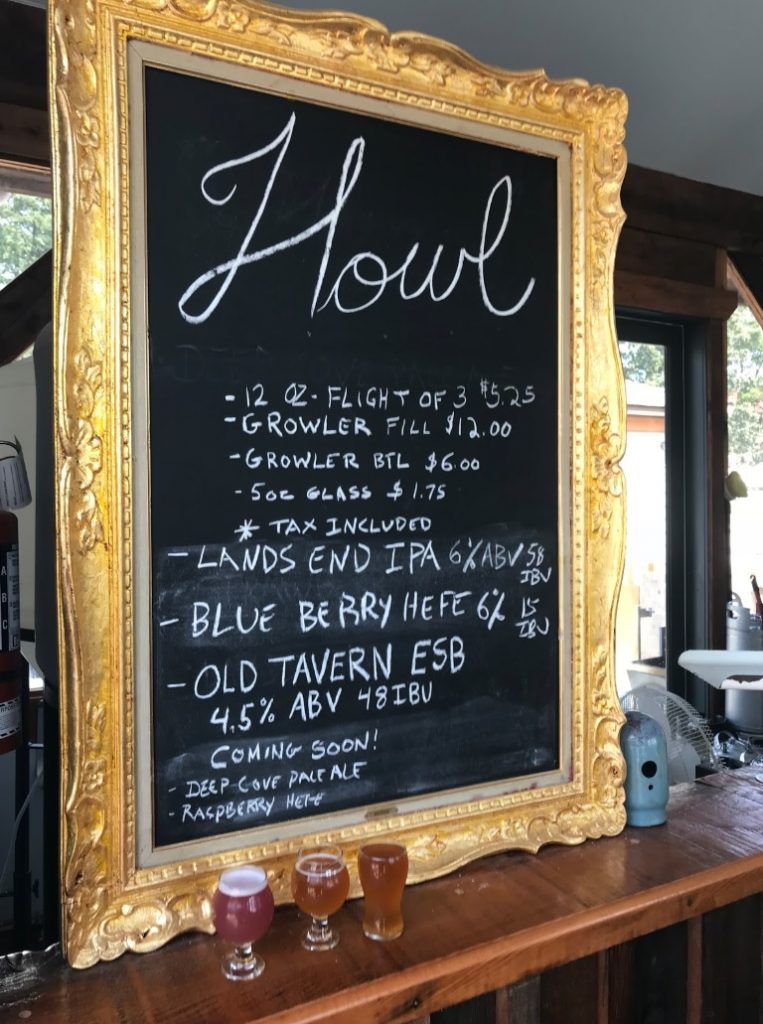 Howl
- 12 OZ. FLIGHT OF 3 $5.25
- GROWLER FILL $12.00
- GROWLER BTL $6.00
- 5oz GLASS $1.75
* TAX INCLUDED
- LANDS END IPA 6% ABV 58 IBU
- BLUE BERRY HEFE 6% 15 IBU
- OLD TAVERN ESB
4.5% ABV 48 IBU
COMING SOON!
- DEEP COVE PALE ALE
- RASPBERRY HEFE
A
B
C